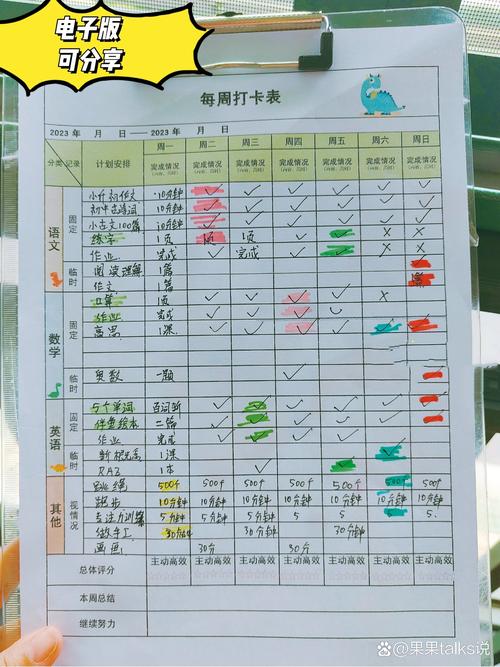 电子版
可分享
每周打卡表
2023年 月 日 — 2023年 月 日
分类 记录 计划安排 周一 周二 周三 周四 周五 周六 周日
完成情况 完成情况 完成情况 完成情况 完成情况 完成情况 完成情况
语文
固定
小升初作文 10分钟 ✓ ✓ ✓ ✓ ✓ ✓
初中古诗词 10分钟 ✓ ✓ ✓ ✓ ✓
小古文100篇 10分钟 ✓ ✓ ✓ ✓ ✓
练字 1页 1页 1页 ✓ ✓ × ×
作业 完成 ✓ 完成 ✓ ✓ × ×
临时
阅读理解 1篇
作文 1篇
数学
固定
口算 1页 ✓ ✓ ✓ ✓ ×
作业 完成 ✓ ✓ ✓ ✓
高思 1课 ✓ ✓ ✓ ✓
临时
奥数 一题 ✓
英语
固定
5个单词 百词斩 ✓ ✓ ✓ ✓ ✓
伴鱼绘本 二篇 ✓ ✓ ✓ ✓ ✓
作业 完成 ✓ ✓ ✓ ✓
临时
新概念 1课 ✓
RAZ 1本 ✓ ✓ ✓
其他
视情况
跳绳 500个 500个 500个 500个 500个 500个 500个
跑步 10分钟 10分钟 10分钟 10分钟 10分钟 10分钟 10分钟
专注力训练 5分钟 5分钟 5分钟 5 5 5 5
做手工 30分钟 30分钟 30分钟
画画 30分 30分
总体评分 主动高效 主动高效 主动高效 主动高效 主动高效 主动高效 主动高效
☆☆☆☆☆ ☆☆☆☆☆ ☆☆☆☆☆ ☆☆☆☆☆ ☆☆☆☆☆ ☆☆☆☆☆ ☆☆☆☆☆
本周总结
继续努力
@果果talks说